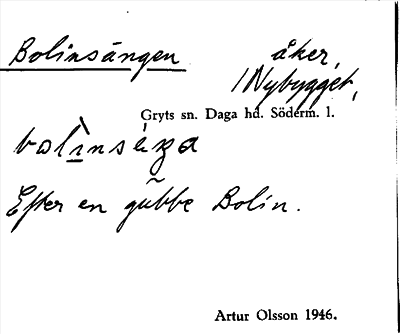 Bolinsängen åker,
/Nybygget,
Gryts sn. Daga hd. Söderm. l.
Efter en gubbe Bolin.
Artur Olsson 1946.